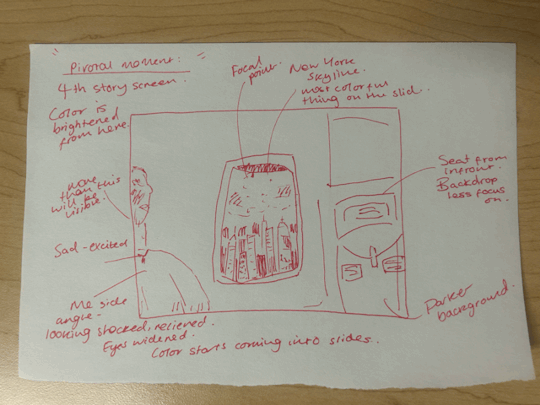 "Pivotal moment:"
4th story screen.
Color is
brightened
from here.
Focal
point.
New York
Skyline.
most colorful
thing on the slid.
more
than this
will be
visible.
Seat from
infront.
Backdrop
less focus
on.
Sad - excited
Me side
angle -
looking shocked, relieved.
Eyes widened.
Color starts coming into slides.
Darker
background.